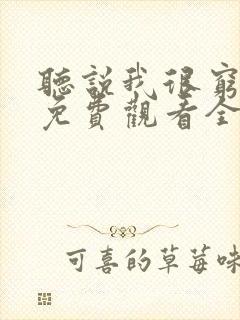 聽說我很窮
免費觀看全
可喜的草莓味